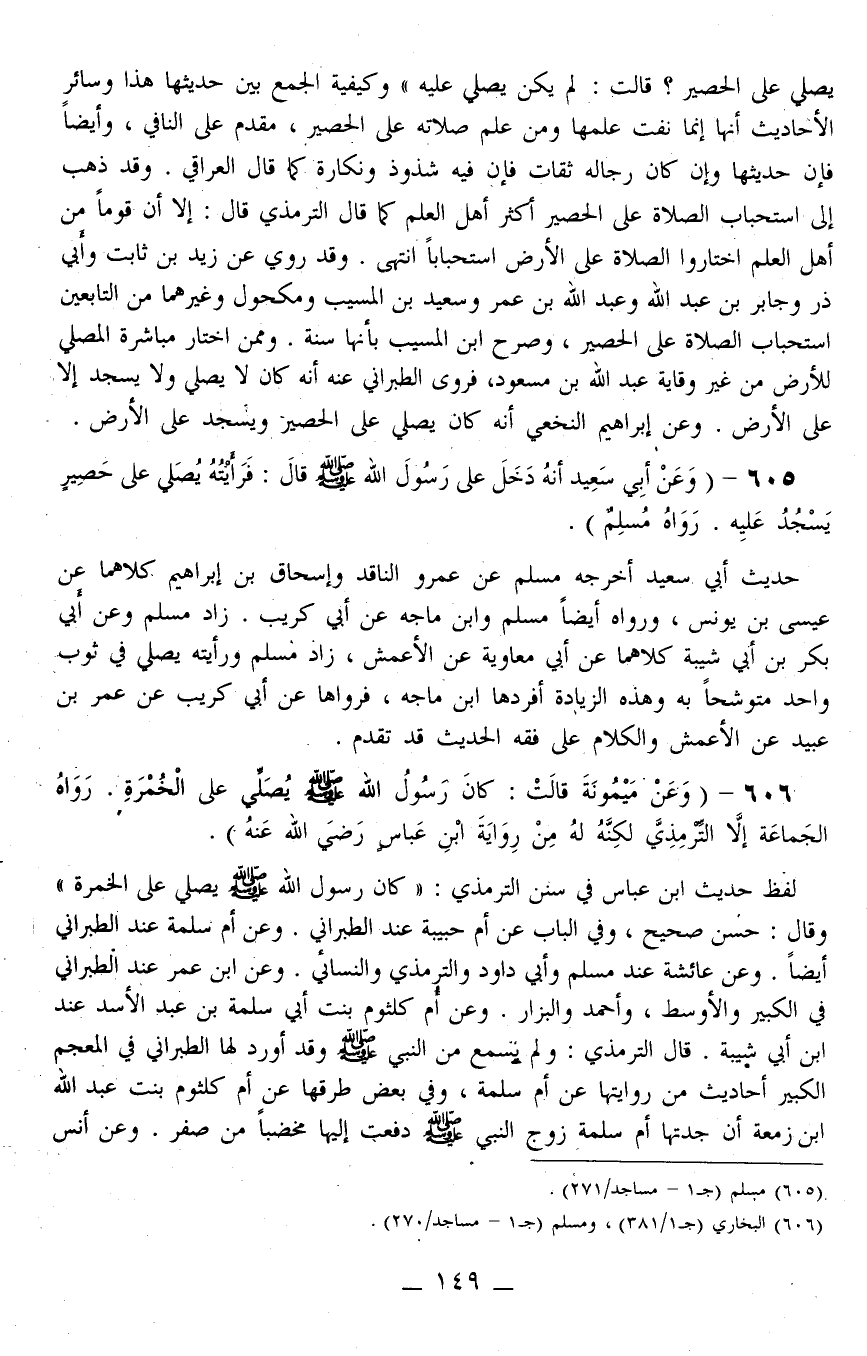 يصلي على الحصير ؟ قالت : لم يكن يصلي عليه » وكيفية الجمع بين حديثها هذا وسائر
الأحاديث أنها إنما نفت علمها ومن علم صلاته على الحصير ، مقدم على النافي ، وأيضاً
فإن حديثها وإن كان رجاله ثقات فإن فيه شذوذ ونكارة كما قال العراقي . وقد ذهب
إلى استحباب الصلاة على الحصير أكثر أهل العلم كما قال الترمذي قال : إلا أن قوماً من
أهل العلم اختاروا الصلاة على الأرض استحباباً انتهى . وقد روي عن زيد بن ثابت وأبي
ذر وجابر بن عبد الله وعبد الله بن عمر وسعيد بن المسيب ومكحول وغيرهما من التابعين
استحباب الصلاة على الحصير ، وصرح ابن المسيب بأنها سنة . وممن اختار مباشرة المصلي
للأرض من غير وقاية عبد الله بن مسعود، فروى الطبراني عنه أنه كان لا يصلي ولا يسجد إلا
على الأرض . وعن إبراهيم النخعي أنه كان يصلي على الحصير ويسجد على الأرض .
٦٠٥ – ( وَعَنْ أبِي سَعِيد أنهُ دَخَلَ على رَسُولَ الله ﷺ قالَ : فَرَأَيْتُهُ يُصَلي على حَصِيرٍ
يَسْجُدُ عَليه . رَوَاهُ مُسلِمٌ ) .
حديث أبي سعيد أخرجه مسلم عن عمرو الناقد وإسحاق بن إبراهيم كلاهما عن
عيسى بن يونس ، ورواه أيضاً مسلم وابن ماجه عن أبي كريب . زاد مسلم وعن أبي
بكر بن أبي شيبة كلاهما عن أبي معاوية عن الأعمش ، زاد مسلم ورأيته يصلي في ثوب
واحد متوشحاً به وهذه الزيادة أفردها ابن ماجه ، فرواها عن أبي كريب عن عمر بن
عبيد عن الأعمش والكلام على فقه الحديث قد تقدم .
٦٠٦ – ( وَعَنْ مَيْمُونَةَ قالَتْ : كانَ رَسُولُ الله ﷺ يُصَلِّي على الْخُمْرَةِ . رَوَاهُ
الجَماعَة إلَّا التِّرْمِذِيَّ لكِنَّهُ لهُ مِنْ رِوَايَةَ ابْنِ عَباسٍ رَضيَ الله عَنهُ ) .
لفظ حديث ابن عباس في سنن الترمذي : « كان رسول الله ﷺ يصلي على الخمرة »
وقال : حسن صحيح ، وفي الباب عن أم حبيبة عند الطبراني . وعن أم سلمة عند الطبراني
أيضاً . وعن عائشة عند مسلم وأبي داود والترمذي والنسائي . وعن ابن عمر عند الطبراني
في الكبير والأوسط ، وأحمد والبزار . وعن أم كلثوم بنت أبي سلمة بن عبد الأسد عند
ابن أبي شيبة . قال الترمذي : ولم يسمع من النبي ﷺ وقد أورد لها الطبراني في المعجم
الكبير أحاديث من روايتها عن أم سلمة ، وفي بعض طرقها عن أم كلثوم بنت عبد الله
ابن زمعة أن جدتها أم سلمة زوج النبي ﷺ دفعت إليها مخضباً من صفر . وعن أنس
(٦٠٥) مسلم (جـ١ – مساجد/٢٧١) .
(٦٠٦) البخاري (جـ٣٨١/١) ، ومسلم (جـ١ – مساجد/٢٧٠) .
— ١٤٩ —